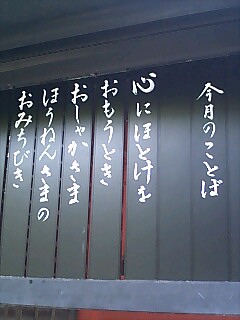 今月のことば
心にほとけを
おもうとき
おしゃかさま
ほうねんさまの
おみちびき